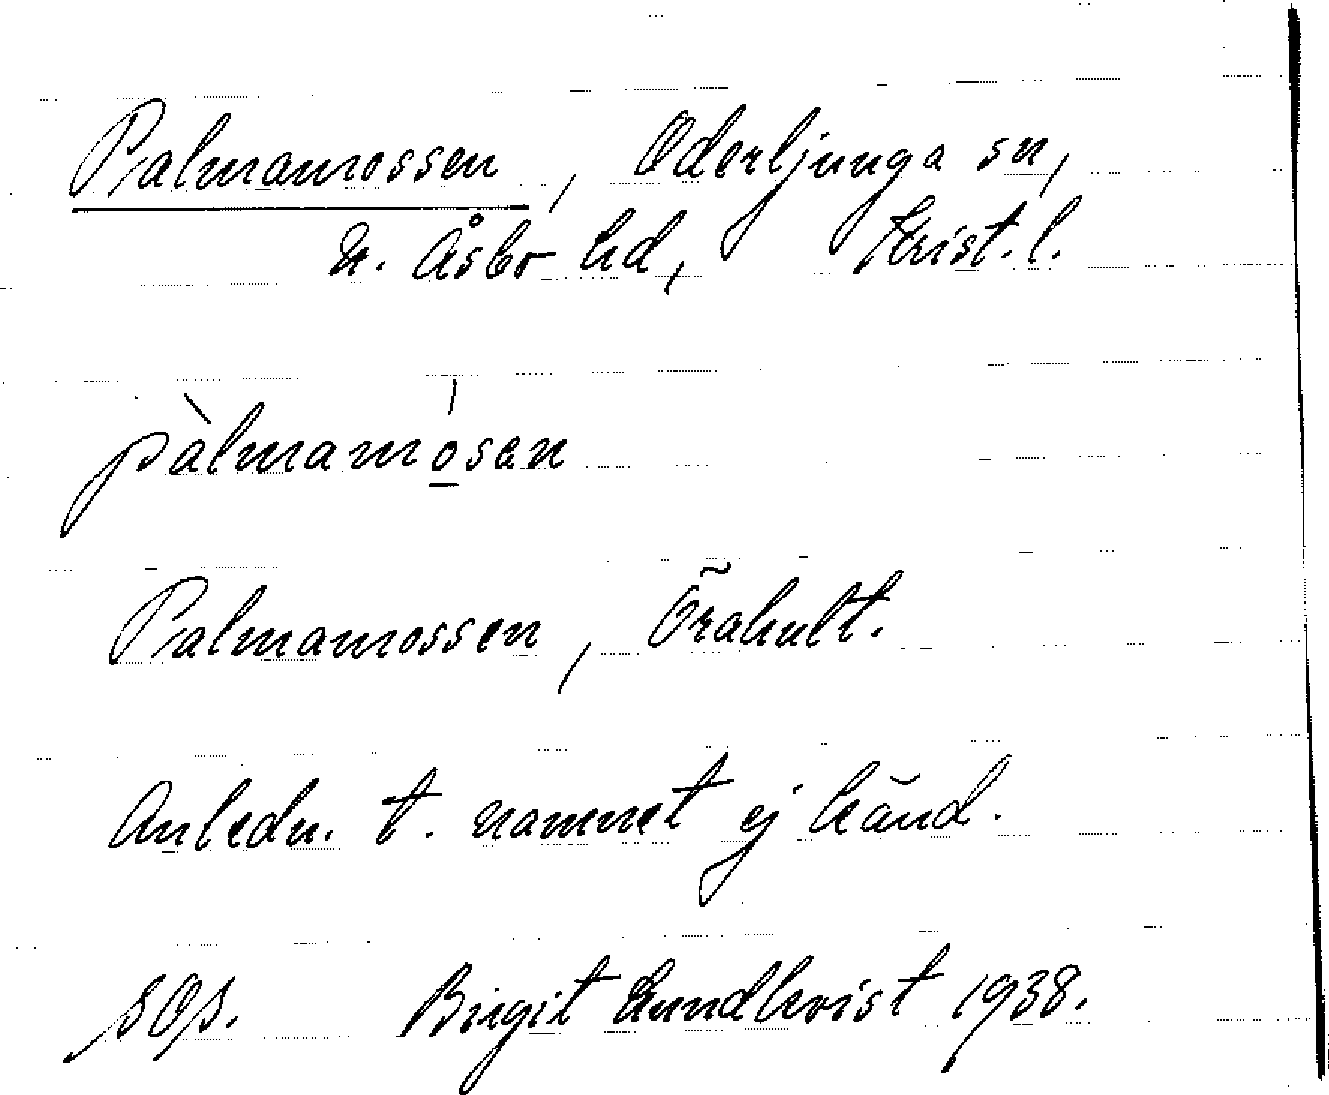 Palmamossen, Oderljunga sn,
N. Åsbo hd, Krist. l.
pàlmamósen
Palmamossen, Örahult.
Anledn. t. namnet ej känd.
SOS. Birgit Lundkvist 1938.